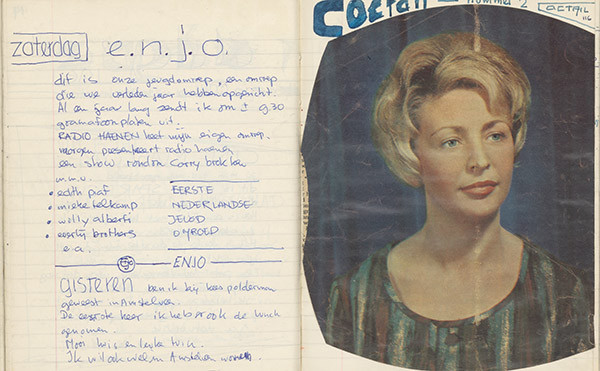 zaterdag e.n.j.o.
dit is onze jeugdomroep, een omroep
die we verleden jaar hebben opgericht.
Al een jaar lang zendt ik om ± 9.30
gramafoonplaten uit.
RADIO HAENEN heet mijn eigen omroep.
morgen presenteert radio haenen
een show rondom Corry brokken
m.m.v.
• edith piaf EERSTE
• mieke telkamp NEDERLANDSE
• willy alberti JEUGD
• everly brothers OMROEP
e.a.
ENJO
GISTEREN ben ik bij kees polderman
geweest in Amstelveen.
De eerste keer ik heb er ook de lunch
genomen.
Mooi huis en leuke
Ik wil ook wel in Amstelveen wonen.
COCTAIL nummer 2 COCTAIL
116